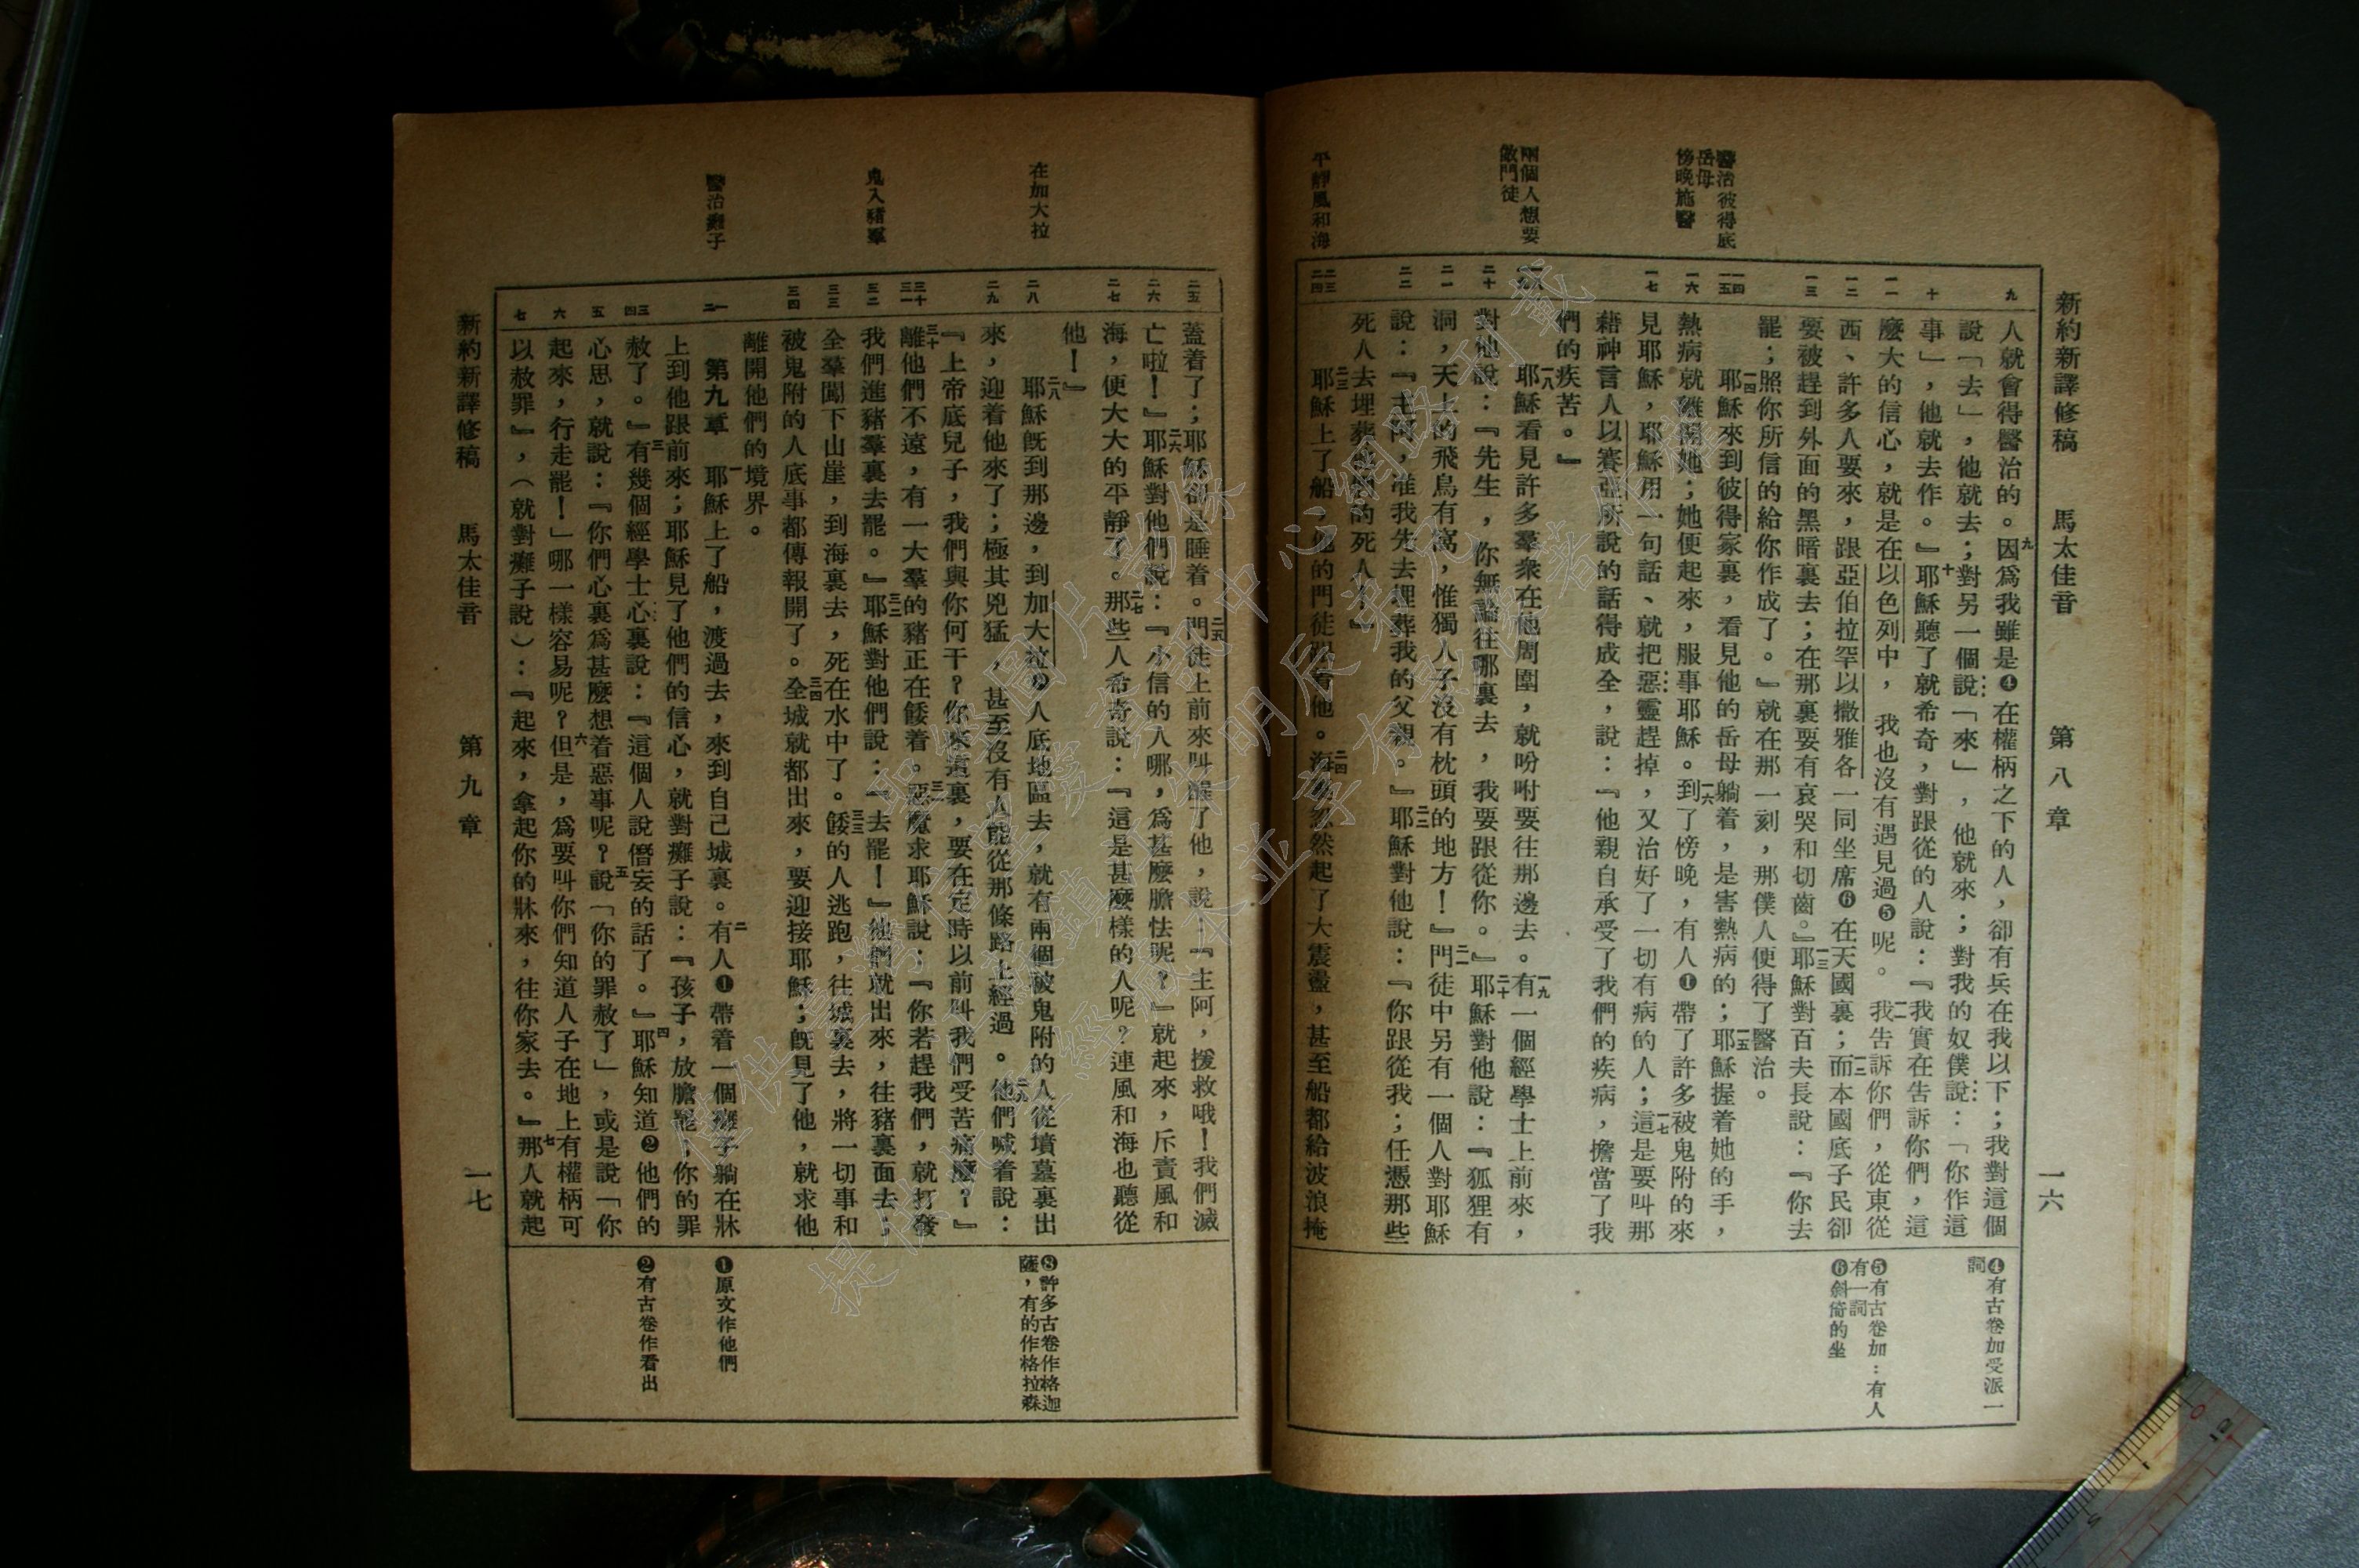 新約新譯修稿 馬太佳音 第八章 一六
醫治彼得底
岳母
傍晚施醫
兩個人想要
做門徒
平靜風和海
九
十
一一
一二
一三
一四
一五
一六
一七
二十
二一
二二
二三
二四
人就會得醫治的。九因為我雖是❹在權柄之下的人，卻有兵在我以下；我對這個
說「去」，他就去；對另一個說「來」，他就來；對我的奴僕說：「你作這
事」，他就去作。』十耶穌聽了就希奇，對跟從的人說：『我實在告訴你們，這
麼大的信心，就是在以色列中，我也沒有遇見過❺呢。一一我告訴你們，從東從
西、許多人要來，跟亞伯拉罕以撒雅各一同坐席❻在天國裏；一二而本國底子民卻
要被趕到外面的黑暗裏去；在那裏要有哀哭和切齒。』一三耶穌對百夫長說：『你去
罷；照你所信的給你作成了。』就在那一刻，那僕人便得了醫治。
一四耶穌來到彼得家裏，看見他的岳母躺着，是害熱病的；一五耶穌握着她的手，
熱病就離開她；她便起來，服事耶穌。一六到了傍晚，有人❶帶了許多被鬼附的來
見耶穌，耶穌用一句話、就把惡靈趕掉，又治好了一切有病的人；一七這是要叫那
藉神言人以賽亞所說的話得成全，說：『他親自承受了我們的疾病，擔當了我
們的疾苦。』
一八耶穌看見許多羣衆在他周圍，就吩咐要往那邊去。一九有一個經學士上前來，
對他說：『先生，你無論往哪裏去，我要跟從你。』二十耶穌對他說：『狐狸有
洞，天上的飛鳥有窩，惟獨人子沒有枕頭的地方！』二一門徒中另有一個人對耶穌
說：『主阿，准我先去埋葬我的父親。』二二耶穌對他說：『你跟從我；任憑那些
死人去埋葬他們的死人。』
二三耶穌上了船，他的門徒跟着他。二四海裏忽然起了大震盪，甚至船都給波浪掩
❹有古卷加受派一
詞
❺有古卷加：有人
有一詞
❻斜倚的坐
在加大拉
鬼入豬羣
醫治癱子
二五
二六
二七
二八
二九
三十
三一
三二
三三
三四
一
二
三
四
五
六
七
蓋着了；耶穌卻是睡着。二五門徒上前來叫醒了他，說：『主阿，援救哦！我們滅
亡啦！』二六耶穌對他們說：『小信的人哪，為甚麼膽怯呢？』就起來，斥責風和
海，便大大的平靜了。二七那些人希奇說：『這是甚麼樣的人呢？連風和海也聽從
他！』
二八耶穌旣到那邊，到加大拉❽人底地區去，就有兩個被鬼附的人從墳墓裏出
來，迎着他來了；極其兇猛，甚至沒有人能從那條路上經過。二九他們喊着說：
『上帝底兒子，我們與你何干？你來這裏，要在定時以前叫我們受苦痛麼？』
三十離他們不遠，有一大羣的豬正在餧着。三一惡魔求耶穌說：『你若趕我們，就打發
我們進豬羣裏去罷。』三二耶穌對他們說：『去罷！』他們就出來，往豬裏面去；
全羣闖下山崖，到海裏去，死在水中了。三三餧的人逃跑，往城裏去，將一切事和
被鬼附的人底事都傳報開了。三四全城就都出來，要迎接耶穌；旣見了他，就求他
離開他們的境界。
第九章 一耶穌上了船，渡過去，來到自己城裏。二有人❶帶着一個癱子躺在牀
上到他跟前來；耶穌見了他們的信心，就對癱子說：『孩子，放膽罷；你的罪
赦了。』三有幾個經學士心裏說：『這個人說僭妄的話了。』四耶穌知道❷他們的
心思，就說：『你們心裏為甚麼想着惡事呢？五說「你的罪赦了」，或是說「你
起來，行走罷！」哪一樣容易呢？六但是，為要叫你們知道人子在地上有權柄可
以赦罪』，（就對癱子說）：『起來，拿起你的牀來，往你家去。』七那人就起
❽許多古卷作格迦
薩，有的作格拉森
❶原文作他們
❷有古卷作看出
新約新譯修稿 馬太佳音 第九章 一七